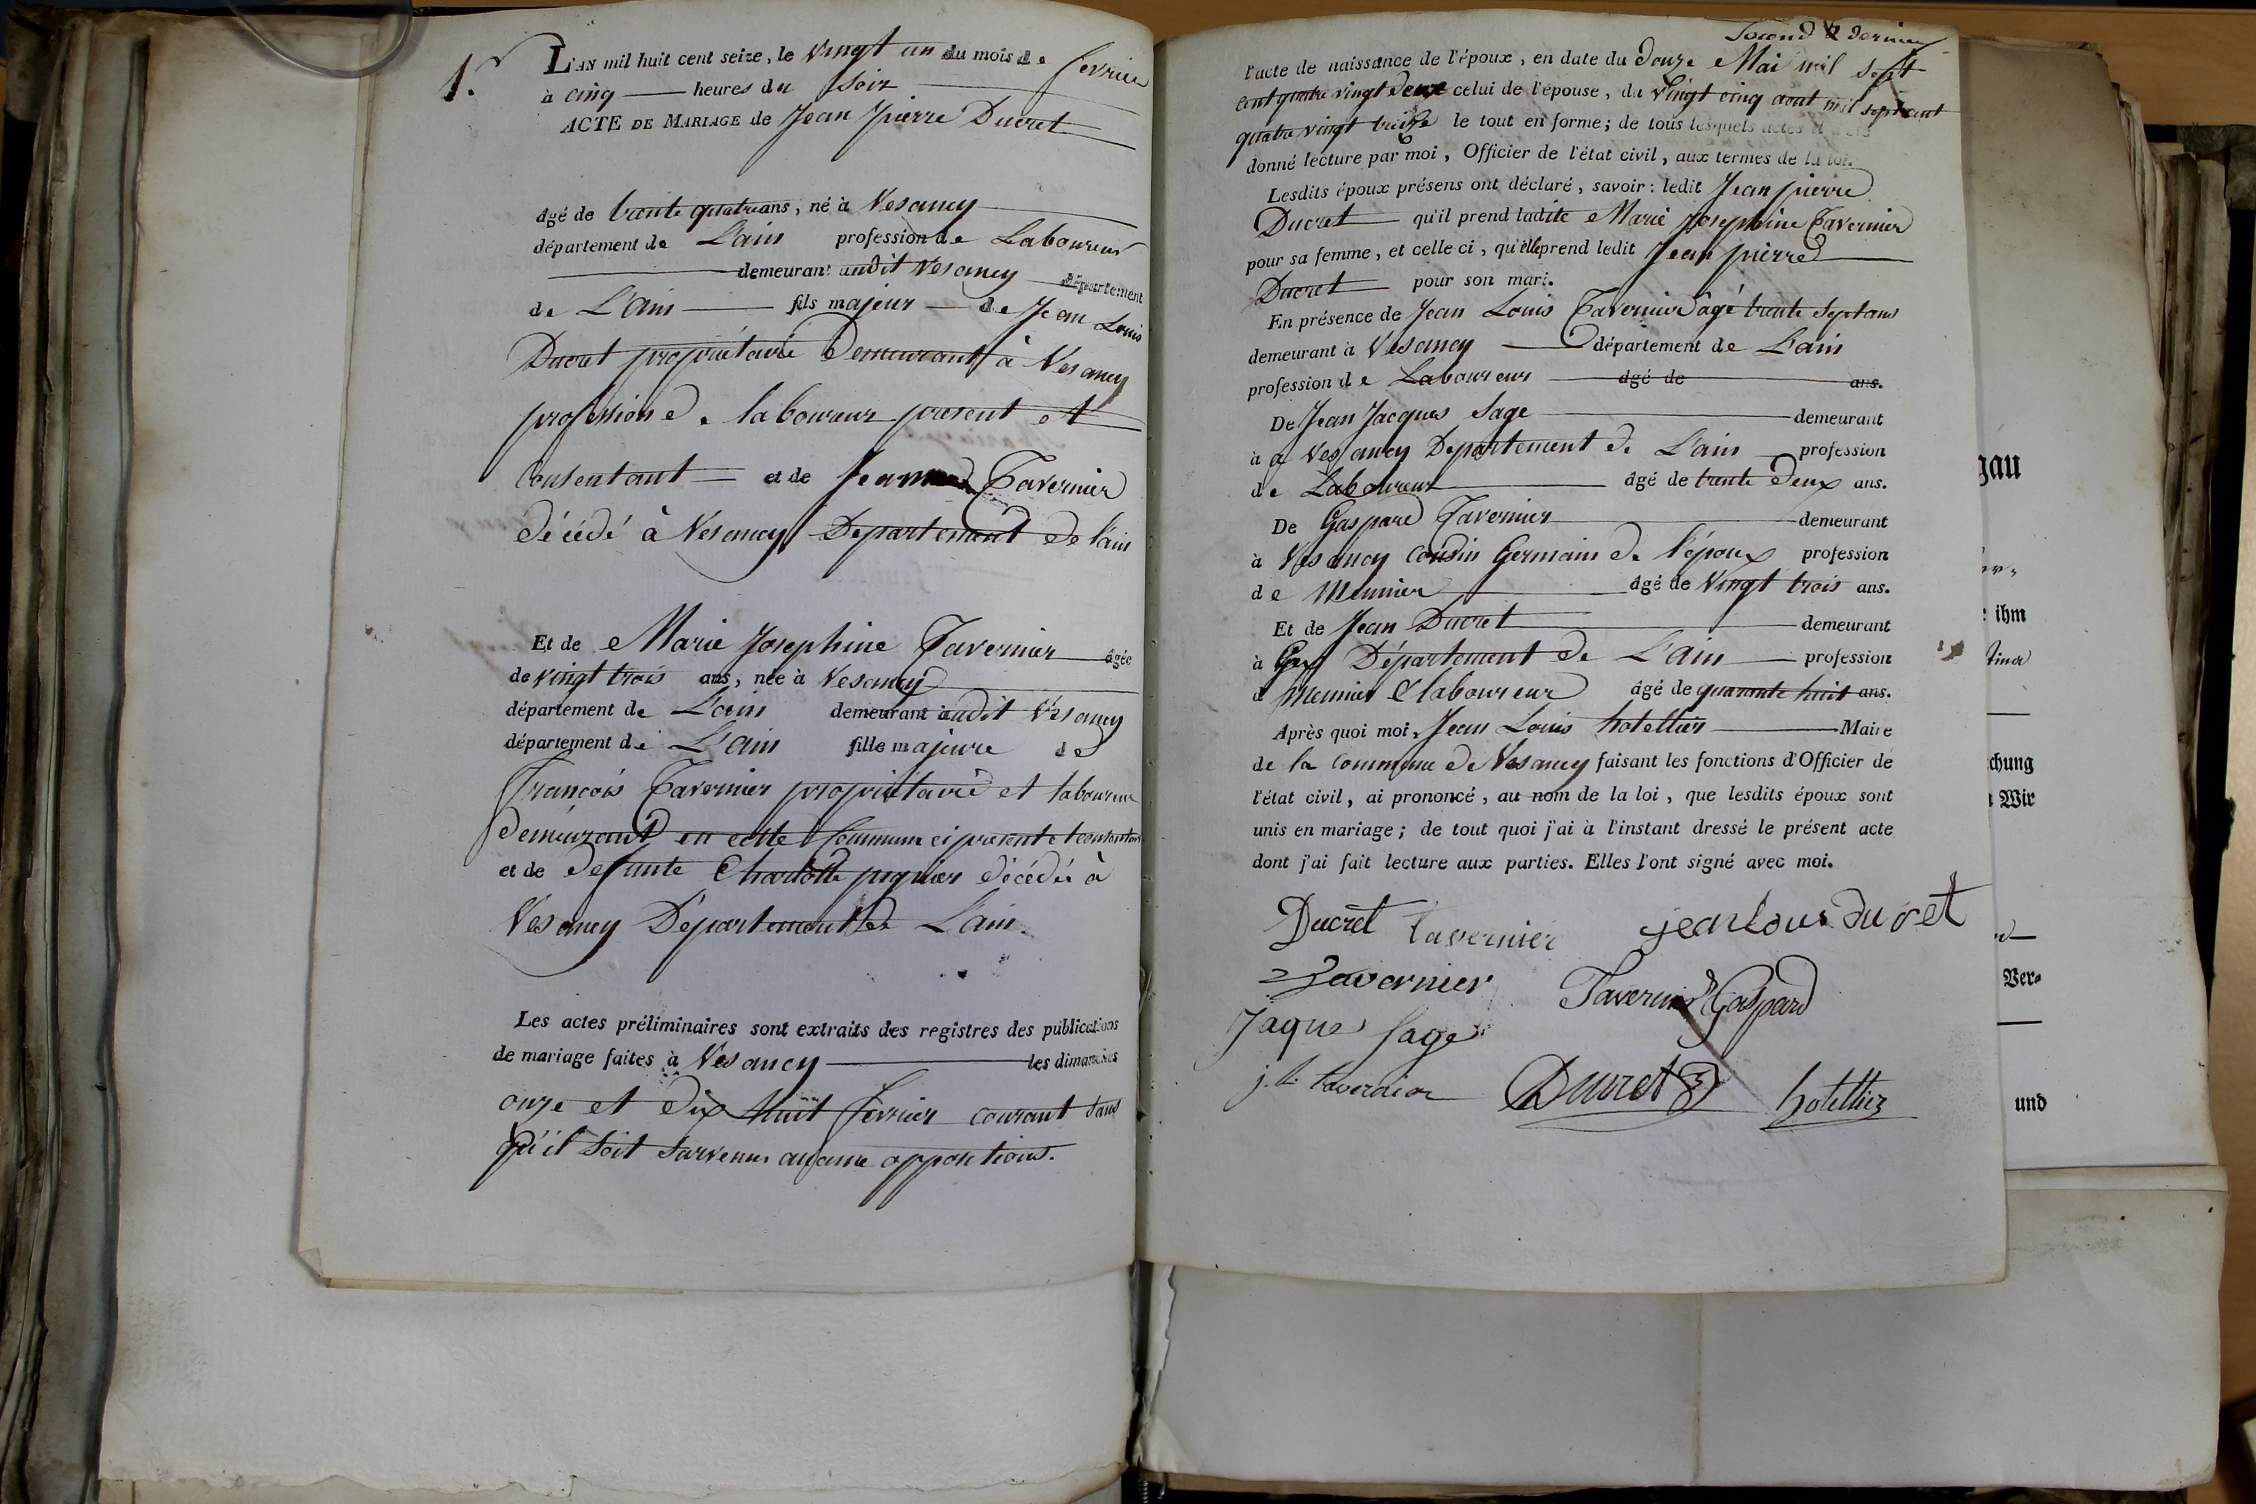 1.r
L'AN mil huit cent seize, le vingt un du mois de fevrier
à cinq heures du soir
ACTE DE MARIAGE de Jean pierre Ducret
âgé de trente quatre ans, né à Vesancy
département de L'ain profession de Laboureur
demeurant audit Vesancy département
de L'ain fils majeur de Jean Louis
Ducret propriétaire demeurant à Vesancy
profession de laboureur present et
Consentant et de Jeanne Tavernier
décédé à Vesancy Departement de l'ain
Et de Marie Josephine Tavernier âgée
de vingt trois ans, née à Vesancy
département de L'ain demeurant audit Vésancy
département de L'ain fille majeure de
François Tavernier propriétaire et laboureur
demeurant en cette Commune ci present et consentant
et de defunte Charlotte décédée à
Vésancy Département de L'ain.
Les actes préliminaires sont extraits des registres des publications
de mariage faites à Vesancy les dimanches
onze et dix huit fevrier courant sans
qu'il soit survenu aucune oppositions.
Second & dernier
l'acte de naissance de l'époux, en date du douze Mai mil sept
cent quatre vingt deux celui de l'épouse, du vingt cinq aout mil sept cent
quatre vingt treize le tout en forme; de tous lesquels actes il a été
donné lecture par moi, Officier de l'état civil, aux termes de la loi.
Lesdits époux présens ont déclaré, savoir: ledit Jean pierre
Ducret qu'il prend ladite Marie Josephine Tavernier
pour sa femme, et celle ci, qu'elle prend ledit Jean pierre
Ducret pour son mari.
En présence de Jean Louis Tavernier âgé trente sept ans
demeurant à Vésancy département de L'ain
profession de Laboureur âgé de ans.
De Jean Jacques Sage demeurant
à a Vesancy Departement de L'ain profession
de Laboureur âgé de trente deux ans.
De Gaspard Tavernier demeurant
à Vesancy Cousin Germain de l'époux profession
de Meunier âgé de vingt trois ans.
Et de Jean Ducret demeurant
à Gex Département de L'ain profession
d Meunier & laboureur âgé de quarante huit ans.
Après quoi moi, Jean Louis hotellier Maire
de la Commune de Vesancy faisant les fonctions d'Officier de
l'état civil, ai prononcé, au nom de la loi, que lesdits époux sont
unis en mariage; de tout quoi j'ai à l'instant dressé le présent acte
dont j'ai fait lecture aux parties. Elles l'ont signé avec moi.
Ducret tavernier jean louis ducret
Tavernier Tavernier Gaspard
Jaque Sage
j. L. tavernier Ducret hotellier
gau
ihm
chung
Wir
Ver=
und